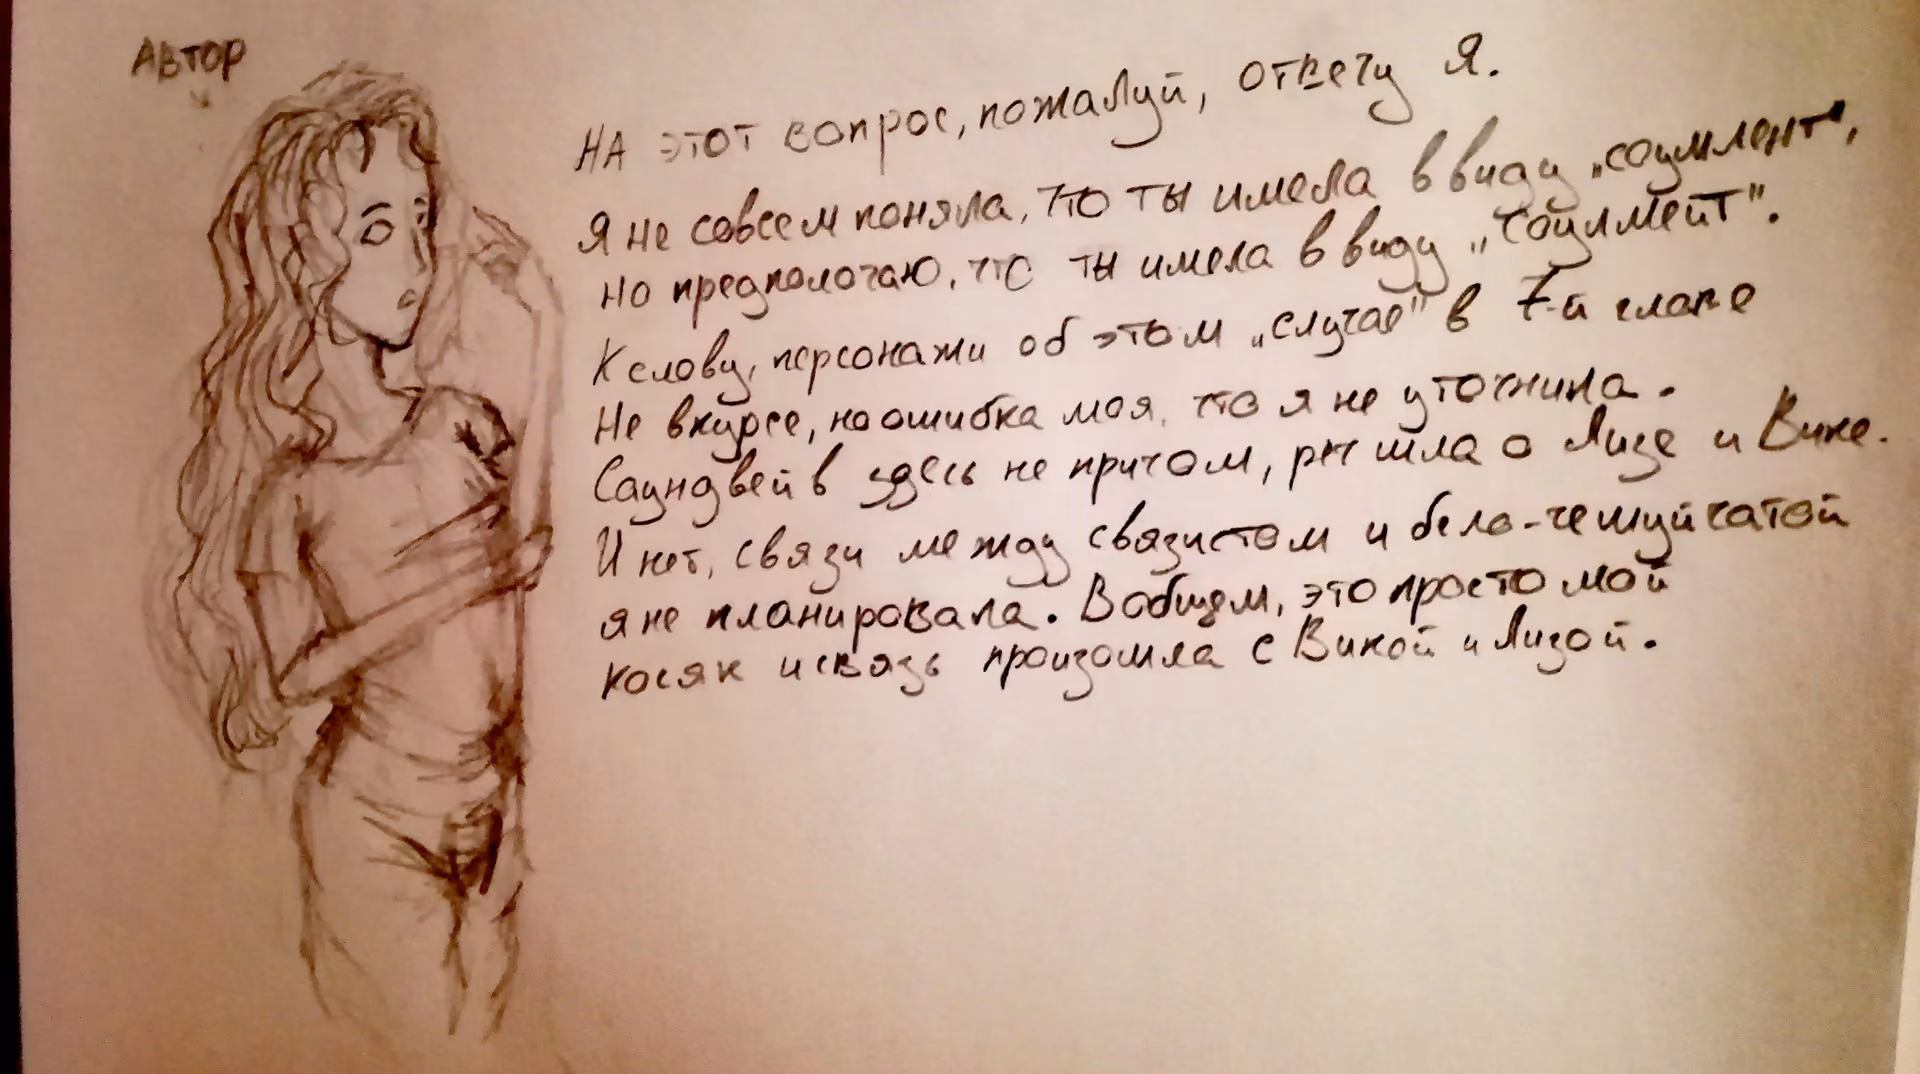 АВТОР
НА этот вопрос, пожалуй, отвечу я.
Я не совсем поняла, что ты имела ввиду „соумлент",
но предпологаю, что ты имела ввиду „соулмейт".
К слову, персонажи об этом „случае" в 7-й главе
Не вкурсе, но ошибка моя, что я не уточнила.
Саундвейв здесь не причом, реч шла о Лизе и Вике.
И нет, связи между связистом и бело-чешуйчатой
я не планировала. Вобщем, это просто мой
косяк и связь произошла с Викой и Лизой.